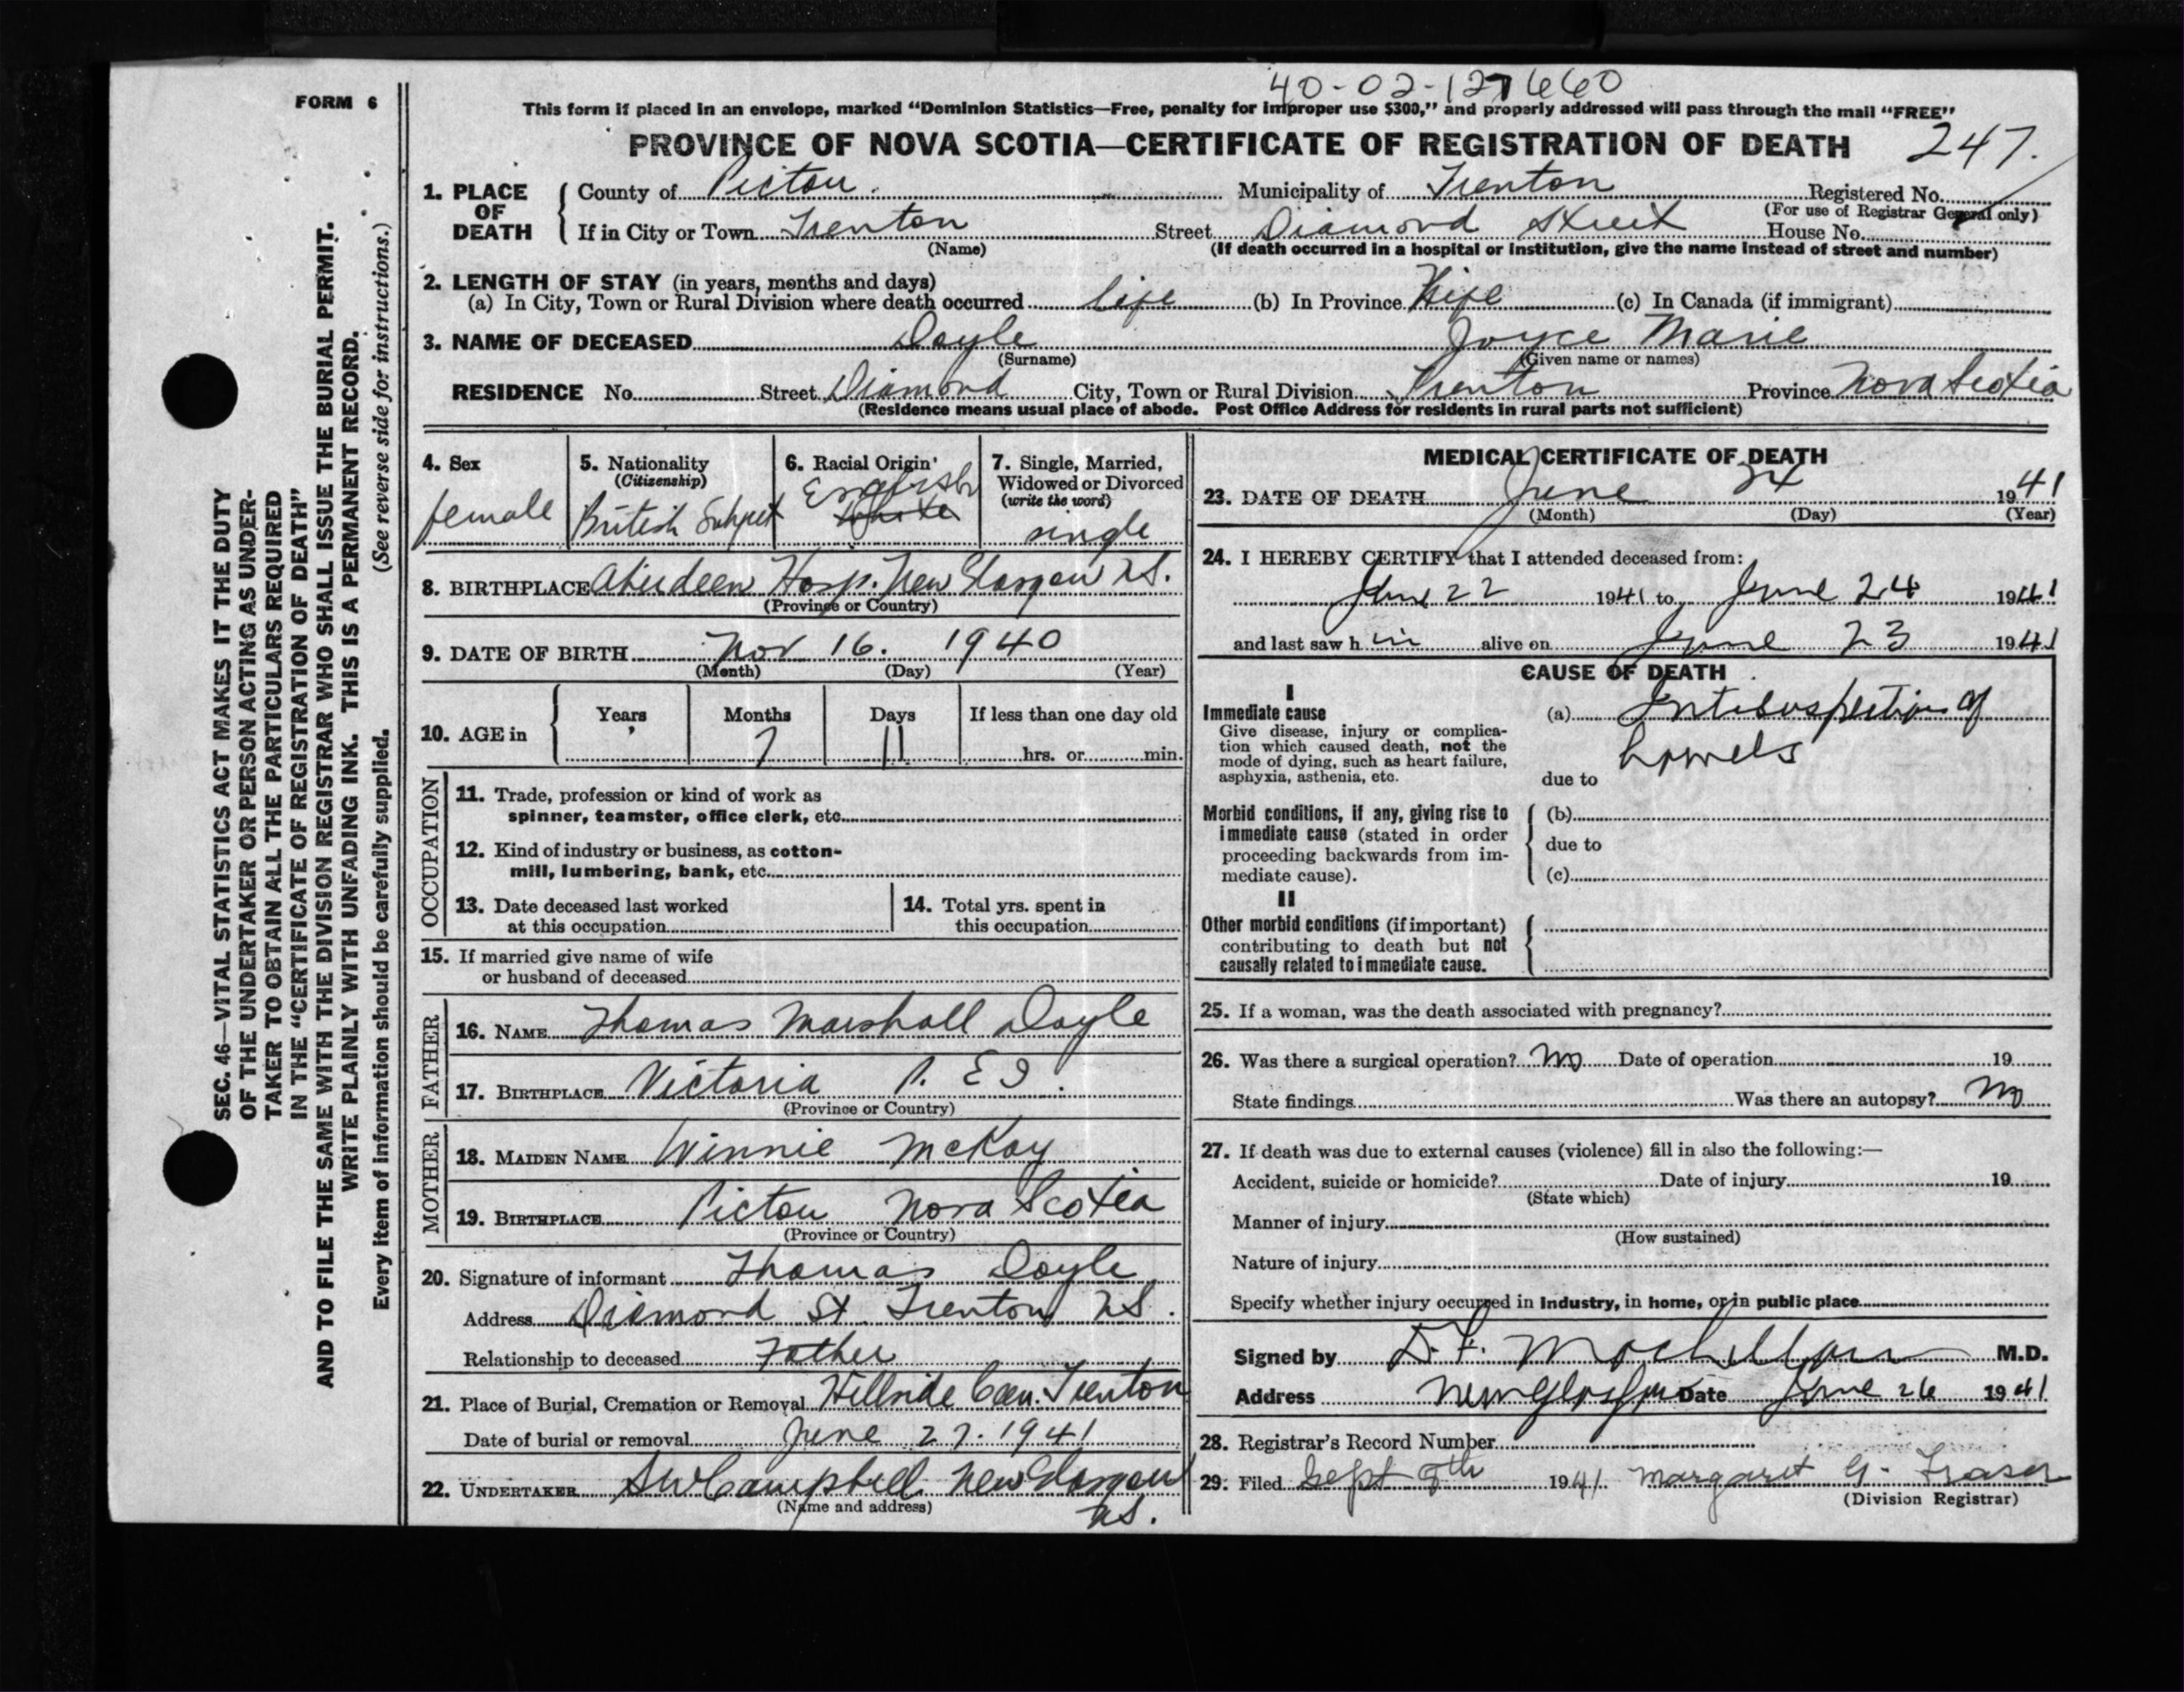 40-02-127660
FORM 6
This form if placed in an envelope, marked "Dominion Statistics—Free, penalty for improper use $300," and properly addressed will pass through the mail "FREE"
PROVINCE OF NOVA SCOTIA—CERTIFICATE OF REGISTRATION OF DEATH 247.
1. PLACE OF DEATH County of Pictou. Municipality of Trenton Registered No.
(For use of Registrar General only)
If in City or Town Trenton Street Diamond Street House No.
(Name) (If death occurred in a hospital or institution, give the name instead of street and number)
2. LENGTH OF STAY (in years, months and days)
(a) In City, Town or Rural Division where death occurred life (b) In Province life (c) In Canada (if immigrant)
3. NAME OF DECEASED Doyle Joyce Marie
(Surname) (Given name or names)
RESIDENCE No. Street Diamond City, Town or Rural Division Trenton Province Nova Scotia
(Residence means usual place of abode. Post Office Address for residents in rural parts not sufficient)
4. Sex
female
5. Nationality
(Citizenship)
British Subject
6. Racial Origin
English
White
7. Single, Married,
Widowed or Divorced
(write the word)
single
8. BIRTHPLACE Aberdeen Hosp. New Glasgow N.S.
(Province or Country)
9. DATE OF BIRTH Nov 16. 1940
(Month) (Day) (Year)
10. AGE in Years Months Days If less than one day old
7 11 hrs. or min.
OCCUPATION
11. Trade, profession or kind of work as
spinner, teamster, office clerk, etc.
12. Kind of industry or business, as cotton-
mill, lumbering, bank, etc.
13. Date deceased last worked
at this occupation
14. Total yrs. spent in
this occupation
15. If married give name of wife
or husband of deceased
FATHER
16. NAME Thomas Marshall Doyle
17. BIRTHPLACE Victoria P. E I.
(Province or Country)
MOTHER
18. MAIDEN NAME Winnie McKay
19. BIRTHPLACE Pictou Nova Scotia
(Province or Country)
20. Signature of informant Thomas Doyle
Address Diamond St. Trenton N.S.
Relationship to deceased Father
21. Place of Burial, Cremation or Removal Hillside Cem. Trenton
Date of burial or removal June 27. 1941
22. UNDERTAKER SW Campbell New Glasgow
(Name and address) N.S.
MEDICAL CERTIFICATE OF DEATH
23. DATE OF DEATH June 24 1941
(Month) (Day) (Year)
24. I HEREBY CERTIFY that I attended deceased from:
June 22 1941 to June 24 1941
and last saw h im alive on June 23 1941
CAUSE OF DEATH
I
Immediate cause
Give disease, injury or complica-
tion which caused death, not the
mode of dying, such as heart failure,
asphyxia, asthenia, etc.
(a) of
bowels
due to
Morbid conditions, if any, giving rise to
immediate cause (stated in order
proceeding backwards from im-
mediate cause).
(b)
due to
(c)
II
Other morbid conditions (if important)
contributing to death but not
causally related to immediate cause.
25. If a woman, was the death associated with pregnancy?
26. Was there a surgical operation? No Date of operation 19
State findings Was there an autopsy? No
27. If death was due to external causes (violence) fill in also the following:—
Accident, suicide or homicide? Date of injury 19
(State which)
Manner of injury
(How sustained)
Nature of injury
Specify whether injury occurred in Industry, in home, or in public place
Signed by D. F. M.D.
Address New Glasgow Date June 26 1941
28. Registrar's Record Number
29. Filed Sept 8th 1941 Margaret G. Fraser
(Division Registrar)
SEC. 46—VITAL STATISTICS ACT MAKES IT THE DUTY
OF THE UNDERTAKER OR PERSON ACTING AS UNDER-
TAKER TO OBTAIN ALL THE PARTICULARS REQUIRED
IN THE "CERTIFICATE OF REGISTRATION OF DEATH"
AND TO FILE THE SAME WITH THE DIVISION REGISTRAR WHO SHALL ISSUE THE BURIAL PERMIT.
WRITE PLAINLY WITH UNFADING INK. THIS IS A PERMANENT RECORD.
Every item of information should be carefully supplied. (See reverse side for instructions.)